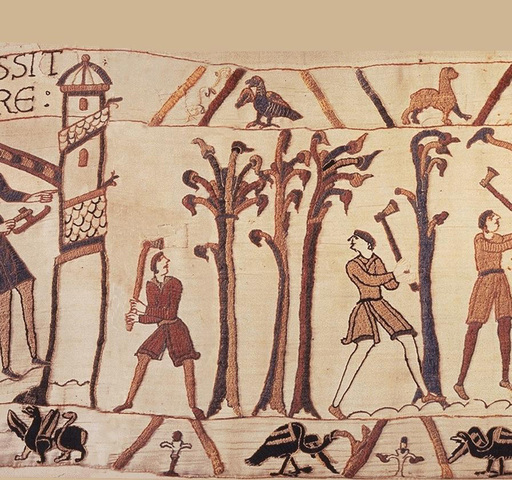 SSIT
RE: